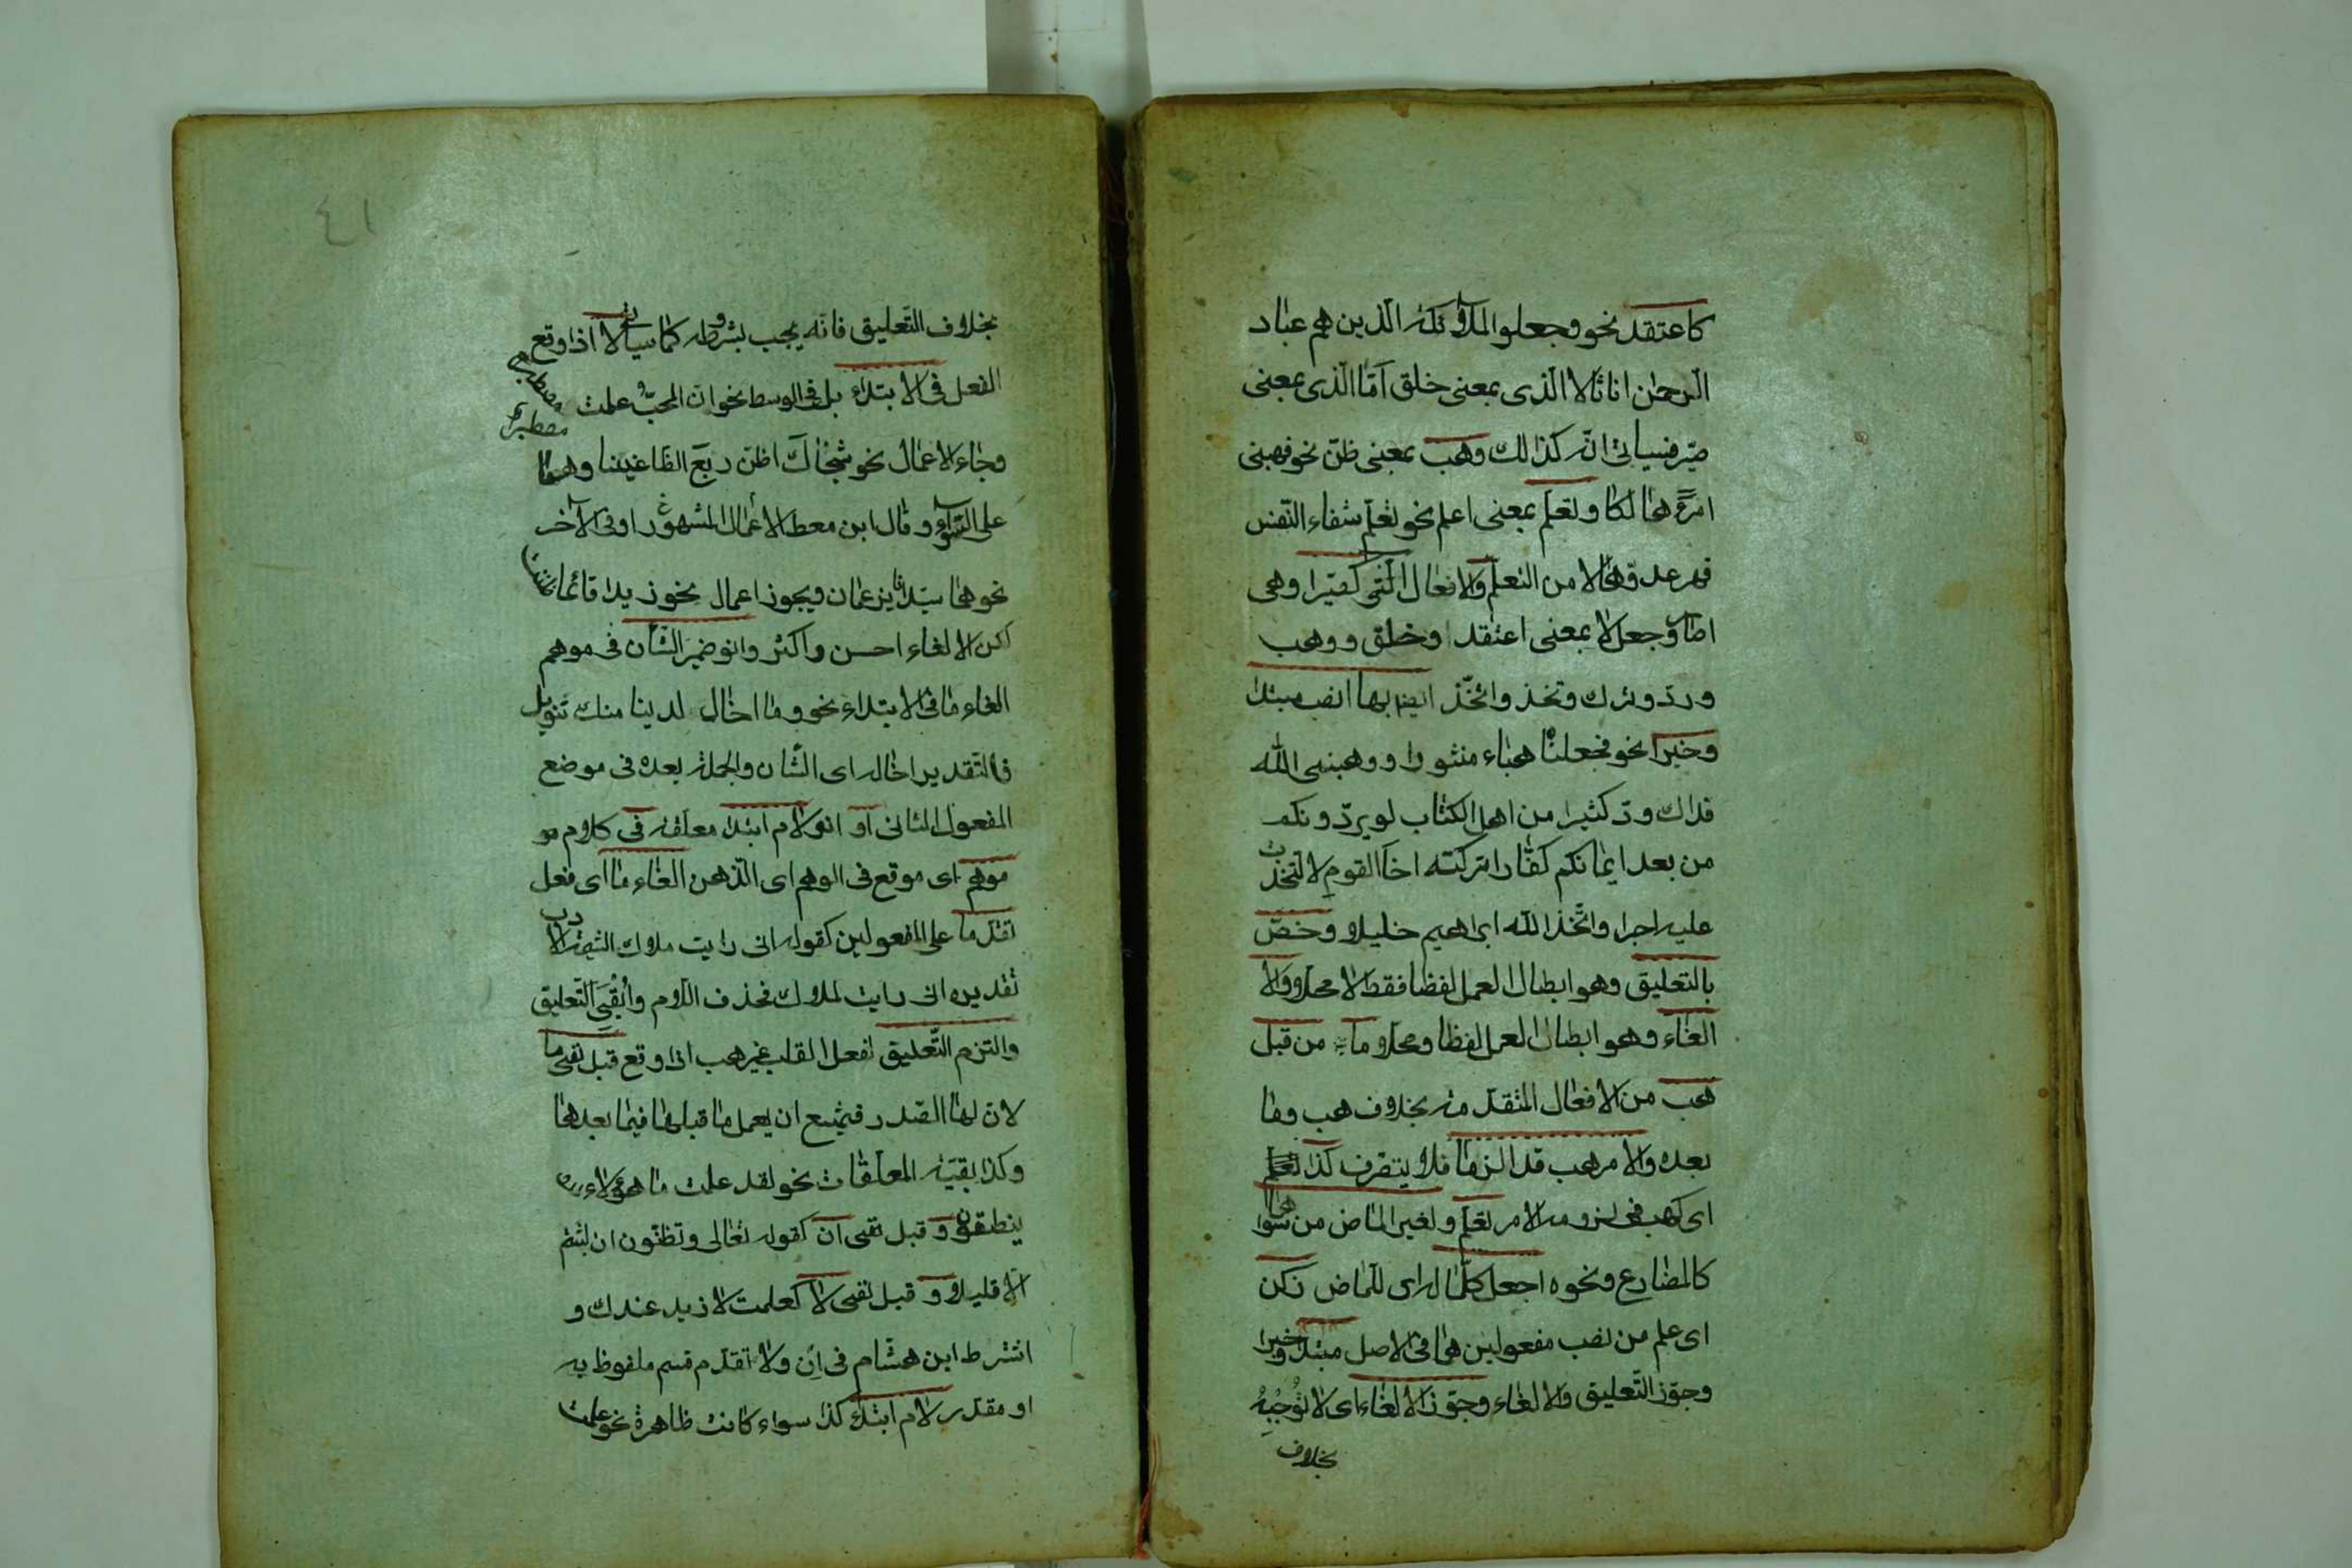 كاعتقد نحو وجعلوا الملائكة الذين هم عباد
الرحمن اناثا لا الذى بمعنى خلق امّا الذى بمعنى
صيّر فسياتى انّه كذالك وهب بمعنى ظنّ نحو فهبنى
امرءً هالكا وتعلّم بمعنى اعلم نحو تعلّم شفاء النّفس
قهر عدوّها لا من التعلّم والافعال الّتى كصيّرا وهى
اصار وجعل لا بمعنى اعتقد وخلق ووهب
وردّ وترك وتخذ واتّخذ ايضا بها انصب مبتدا
وخبرا نحو فجعلناه هباء منثورا ووهبنى الله
فداك ودّ كثيرا من اهل الكتاب لو يردّونكم
من بعد ايمانكم كفّارا تركته اخا القوم لاتّخذت
عليه اجرا واتّخذ الله ابراهيم خليلا وخصّ
بالتعليق وهو ابطال العمل لفظا فقط لا محلا والا
الغاء وهو ابطال العمل لفظا ومحلا ما من قبل
هب من الافعال المتقدّمة بخلاف هب وما
بعده والامر هب قد الزما فلا يتصرف كذا تعلّم
اى كهب فى لزومه الامر تعلّم ولغير الماض من سواهما
كالمضارع ونحوه اجعل كلّما له اى للماض زكن
اى علم من نصب مفعولين هما فى الاصل مبتدا وخبرا
وجوّز التّعليق والالغاء وجوّز الالغاء اى لا تُوجِبْهُ
بخلاف
٤١
بخلاف التّعليق فانّه يجب بشروطه كما سياتى لا اذا وقع
الفعل فى الابتداء بل فى الوسط نحو انّ المحبّ علمت مصطبر
وجاء الاعمال نحو شجاك اظنّ ربعَ الظّاعنينا وهما
على السّواء وقال ابن معط الاعمال المشهور او فى الآخر
نحو هما سيّدانا يزعمان ويجوز اعمال نحو زيدا قائما ظننت
لكن الالغاء احسن واكثر وانو ضمير الشّان فى موهم
الغاء ما فى الابتداء نحو وما اخال لدينا منك تنويل
فالتّقدير اخاله اى الشّان والجملة بعده فى موضع
المفعول الثانى او انو لام ابتدا معلّقة فى كلام مو
موهم اى موقع فى الوهم اى الذّهن الغاء ما اى فعل
تقدّما على المفعولين كقوله انى رايت ملاك الشيمة الادب
تقديره انى رايت لملاك فحذف اللّام وأُبْقِىَ التّعليق
والتزم التّعليق لفعل القلب غير هب اذا وقع قبل نفى ما
لانّ لها الصّدر فيمتنع ان يعمل ما قبلها فيما بعدها
وكذا بقيّة المعلّقات نحو لقد علمت ما هؤلاء
ينطقون و قبل نفى ان كقوله تعالى وتظنّون ان لبثتم
الّا قليلا و قبل نفى لا كعلمت لا زيد عندك و
اشترط ابن هشام فى إن ولا تقدّم قسم ملفوظ به
او مقدّر لام ابتداء كذا سواء كانت ظاهرة نحو علمت